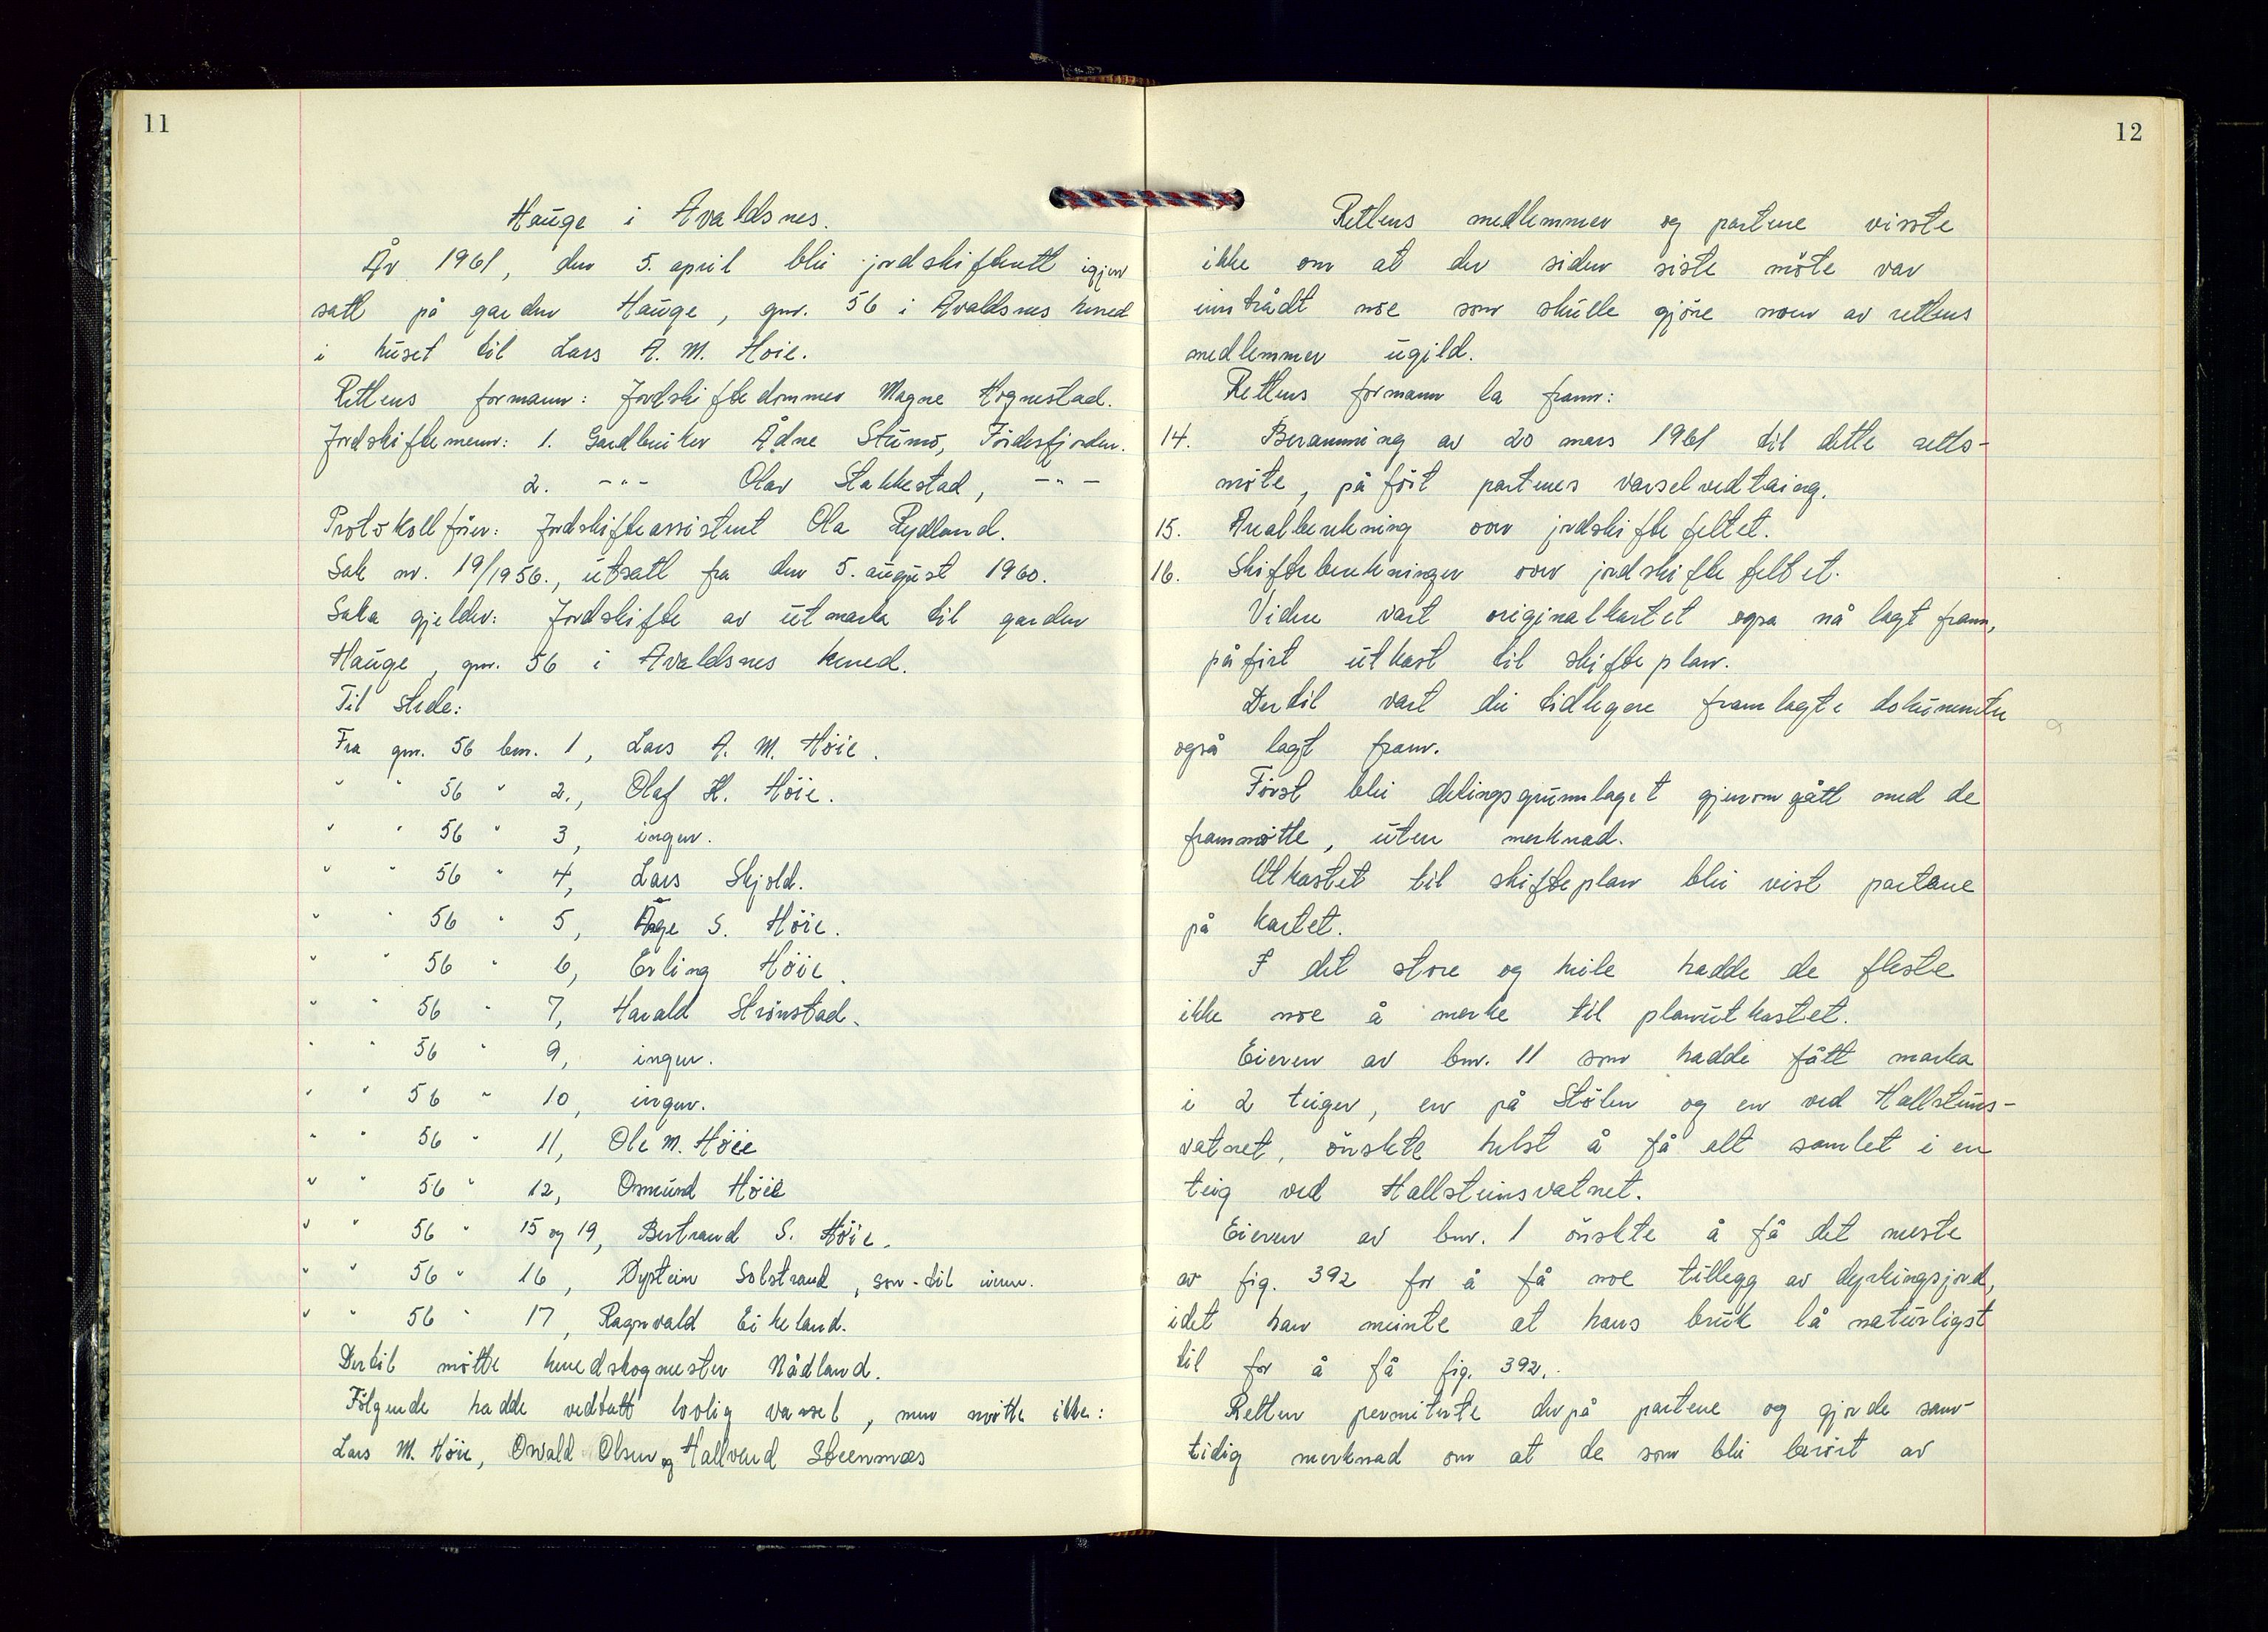 11
Hauge i Avaldsnes.
År 1961, den 5. april blei jordskifterett igjen
satt på garden Hauge, gnr. 56 i Avaldsnes herred
i huset til Lars A. M. Høie.
Rettens formann: Jordskiftedommer Magne Hognestad.
Jordskiftemenn: 1. Gardbruker Ådne Stumo, Fördesfjorden.
2. -"- Olav Stakkestad, -"-
Protokollfører: Jordskifteassistent Ola Rydland.
Sak nr. 19/1956., utsatt fra den 5. august 1960.
Saka gjelder: Jordskifte av utmarka til garden
Hauge, gnr. 56 i Avaldsnes herred.
Til stede:
Fra gnr. 56 bnr. 1, Lars A. M. Höie.
" " 56 " 2., Olaf K. Höie.
" " 56 " 3, ingen.
" " 56 " 4, Lars Skjold.
" " 56 " 5, Åge S. Höie.
" " 56 " 6, Erling Höie.
" " 56 " 7, Harald Strönstad.
" " 56 " 9, ingen.
" " 56 " 10, ingen.
" " 56 " 11, Ole M. Höie
" " 56 " 12, Osmund Höie
" " 56 " 15 og 19, Bertrand S. Höie.
" " 56 " 16, Øystein Solstrand, son til innm.
" " 56 " 17, Ragnvald Eikeland.
Dertil møtte herredskogmester Nådland.
Følgende hadde vedtatt lovlig varsel, men møtte ikke:
Lars M. Höie, Oswald Olsen og Hallvard Steensnæs
12
Rettens medlemmer og partene visste
ikke om at der siden siste möte var
inntrådt noe som skulle gjöre noen av rettens
medlemmer ugild.
Rettens formann la fram:
14. Beramming av 20 mars 1961 til dette retts-
möte, påfört partenes varselvedtaing.
15. Arealberekning over jordskiftefeltet.
16. Skifteberekningen over jordskiftefeltet.
Videre vart originalkartet også nå lagt fram,
påfört utkast til skifteplan.
Dertil vart dei tidlegere framlagte dokumenter
også lagt fram.
Först blei delingsgrunnlaget gjennomgått med de
frammötte, uten merknad.
Utkastet til skifteplan blei vist partane
på kartet.
I det store og heile hadde de fleste
ikke noe å merke til planutkastet.
Eieren av bnr. 11 som hadde fått marka
i 2 teiger, en på Stölen og en ved Hallsteins-
vatnet, önskte helst å få alt samlet i en
teig ved Hallsteinsvatnet.
Eieren av bnr. 1 önskte å få det meste
av fig. 392 for å få noe tillegg av dyrkingsjord,
idet han meinte at hans bruk lå naturligst
til for å få fig. 392.
Retten permiterte derpå partene og gjorde sam-
tidig merknad om at de som blei berört av